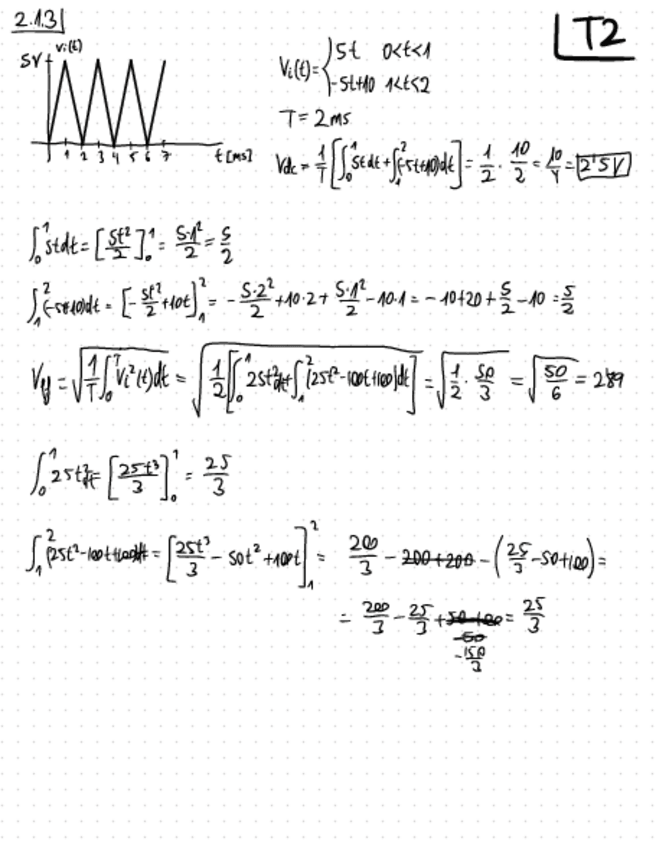 2.1.3
T2
Vi(t)
5V
1 2 3 4 5 6 7 t [ms]
Vi(t) = { 5t 0<t<1
-5t+10 1<t<2
T = 2ms
Vdc = 1/T [∫₀¹ 5t dt + ∫₁² (-5t+10)dt] = 1/2 · 10/2 = 10/4 = 2'5V
∫₀¹ 5t dt = [5t²/2]₀¹ = 5·1²/2 = 5/2
∫₁² (-5t+10)dt = [-5t²/2 + 10t]₁² = -5·2²/2 + 10·2 + 5·1²/2 - 10·1 = -10+20+5/2-10 = 5/2
Vef = √(1/T ∫₀ᵀ Vi²(t)dt) = √(1/2 [∫₀¹ 25t² dt + ∫₁² (25t²-100t+100)dt]) = √(1/2 · 50/3) = √(50/6) = 2'89
∫₀¹ 25t² dt = [25t³/3]₀¹ = 25/3
∫₁² (25t²-100t+100)dt = [25t³/3 - 50t² + 100t]₁² = 200/3 - 200+200 - (25/3 - 50+100) =
= 200/3 - 25/3 + 50-100 = 25/3
-50
-150/3